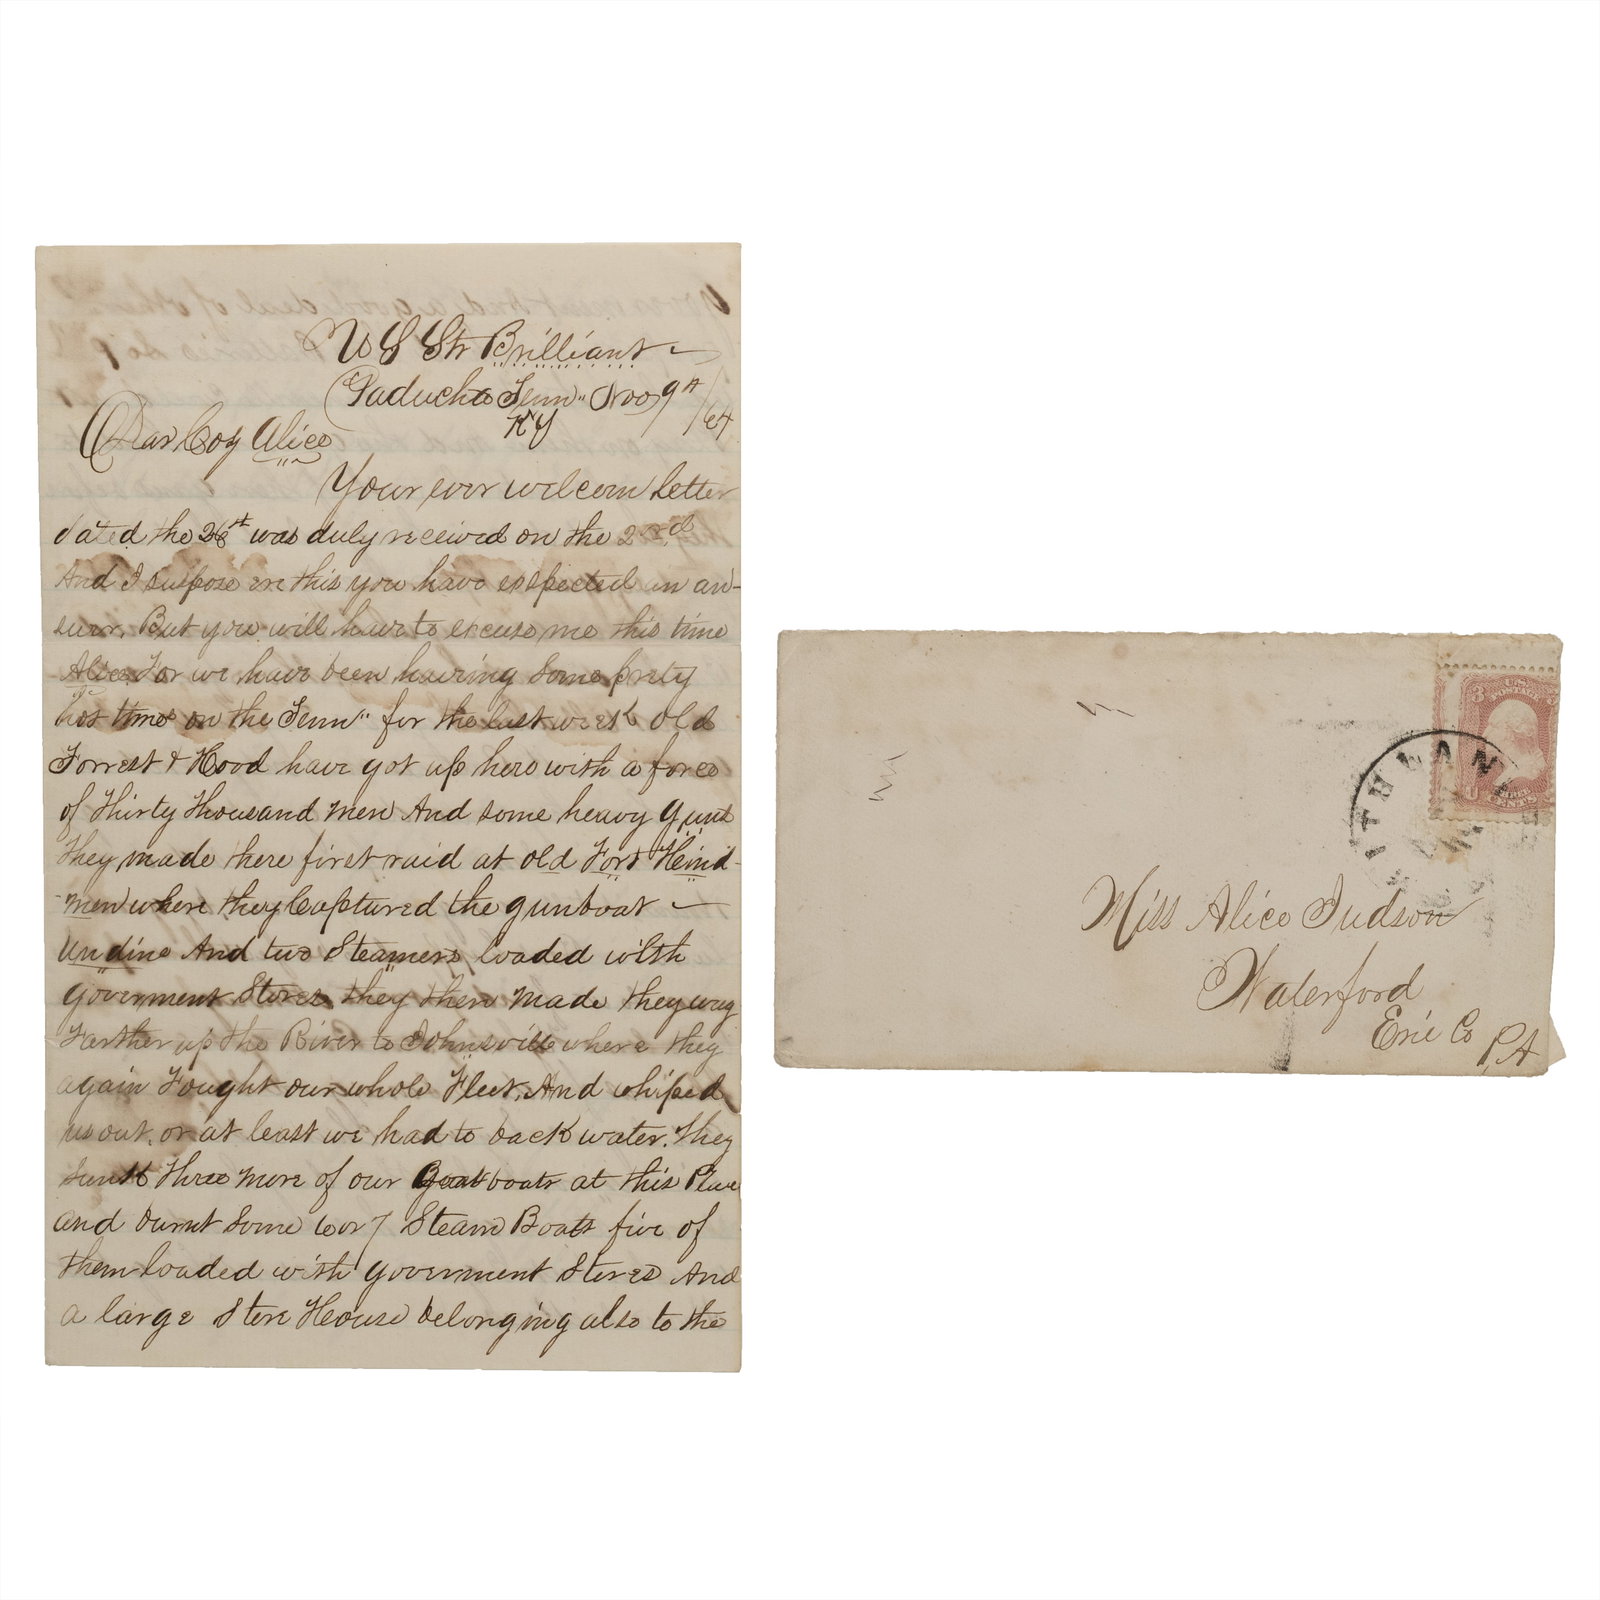 U S Str Brilliant
Paducha Tenn" Nov 9th /64
KY
Dear Coz Alice
Your ever welcom letter
dated the 26st was duly received on the 2nd
And I supose ere this you have exspected an an-
swer, But you will have to excuse me this time
Alice For we have been haveing some prety
hot times on the Tenn" for the last week Old
Forrest & Hood have got up here with a force
of Thirty Thousand men And some heavy guns
They made there first raid at old Fort Heind-
men where they Captured the gunboat
Undine And two Steamers loaded with
goverment Stores they then made they way
Farther up the River to Johnsville where they
again Fought our whole Fleet, And whiped
us out, or at least we had to back water. They
sunk three more of our boats at this Place
and burnt some 6 or 7 Steam Boats five of
them loaded with government Stores And
a large Store House belonging also to the
3 U.S. POSTAGE 3
U THREE CENTS S
Miss Alice Judson
Waterford
Erie Co
P,A